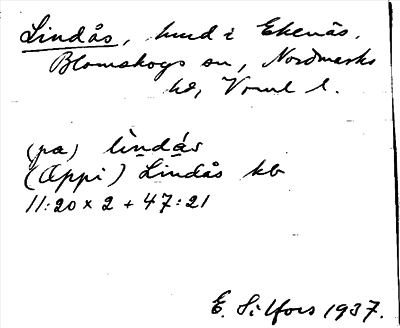 Lindås, hmd i Ekenäs,
Blomskogs sn, Nordmarks
hd, Vrml l.
(pa) lìndás
(Oppi) Lindås kb
11:20 x 2 + 47:21
E. Silfors 1937.